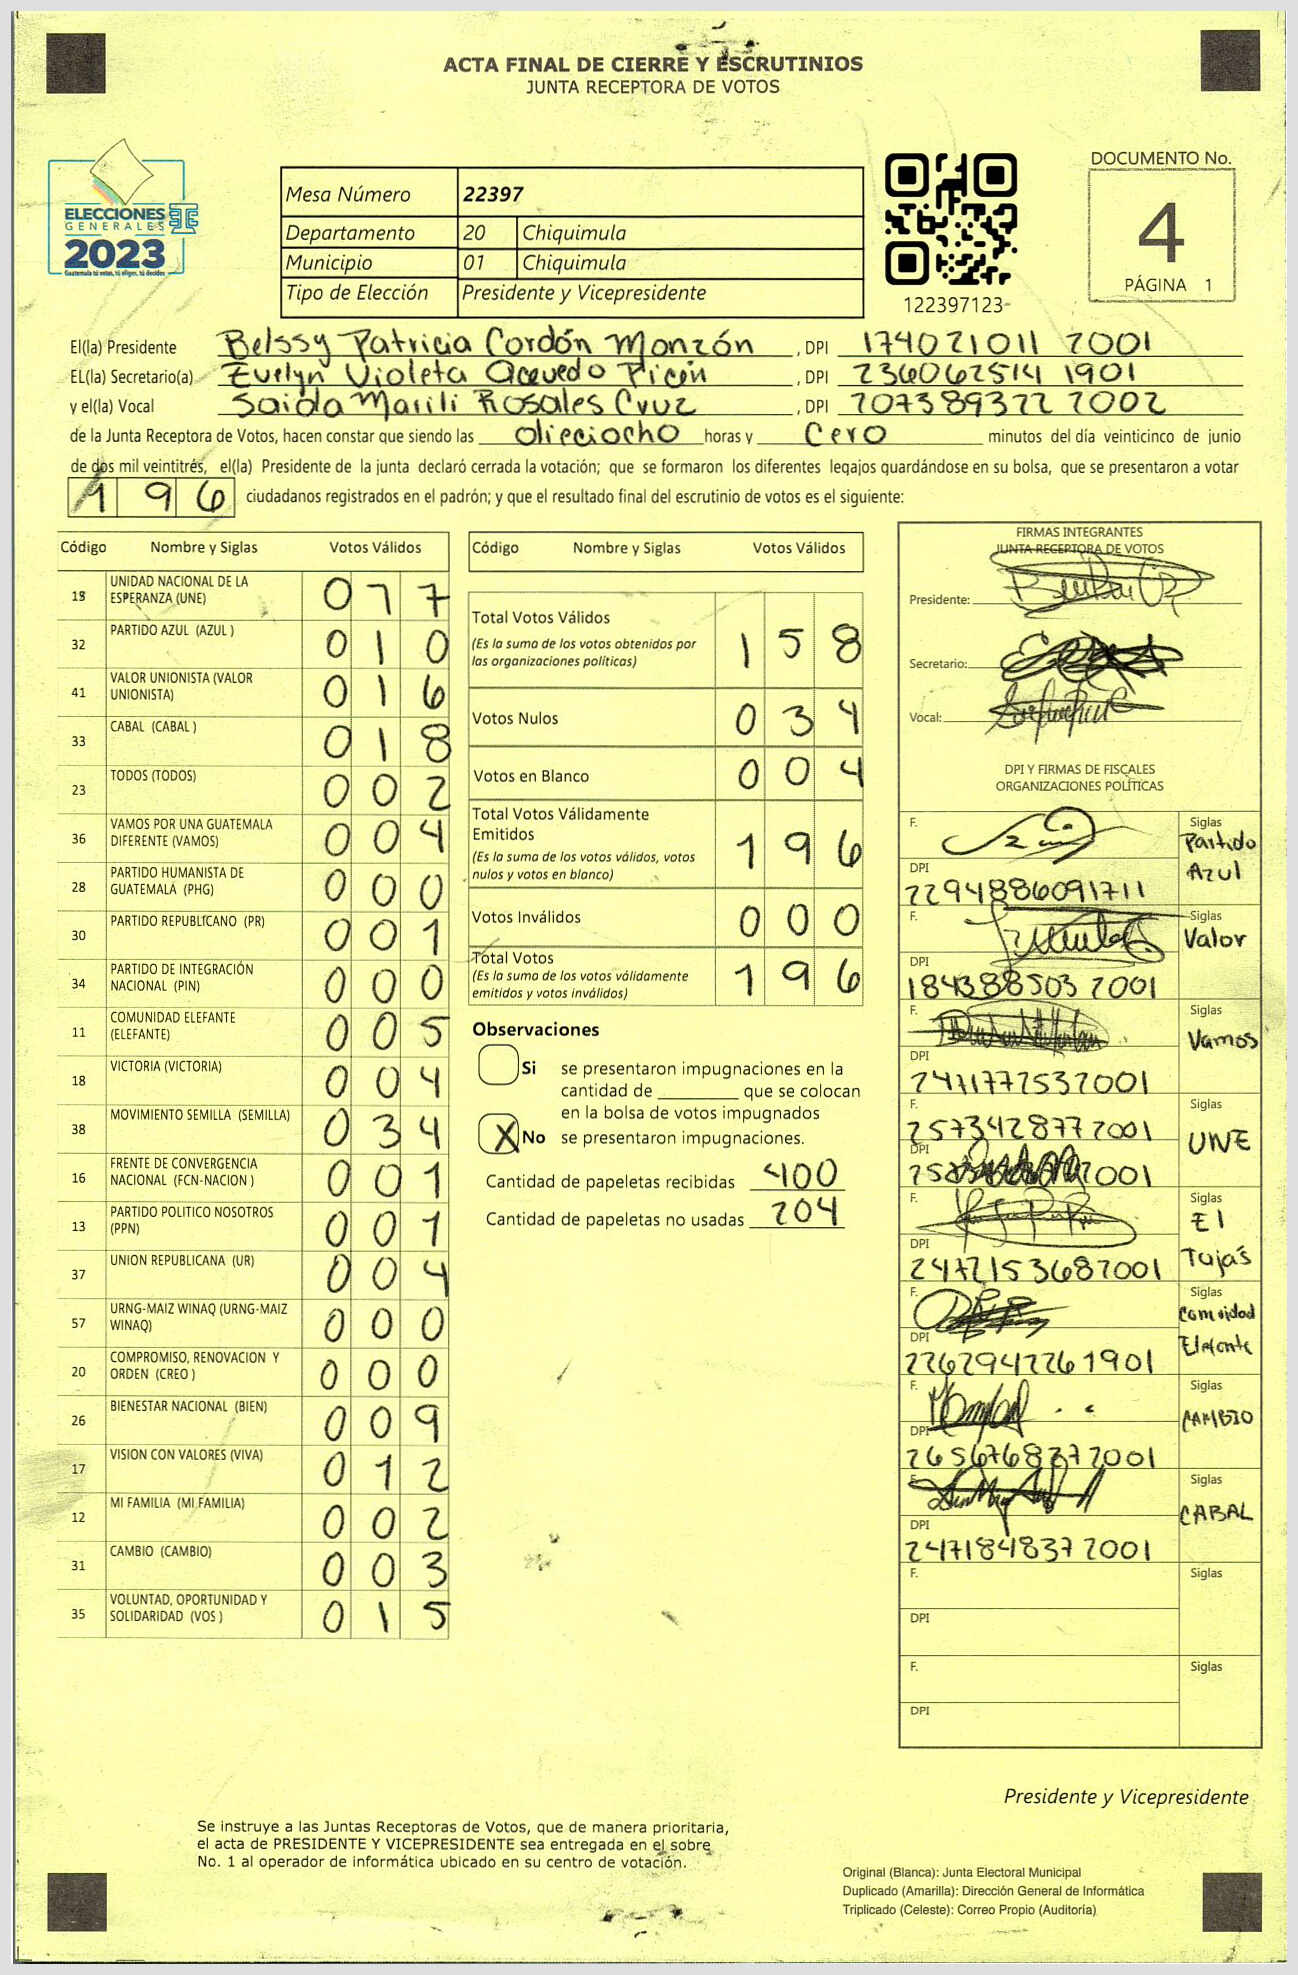 ACTA FINAL DE CIERRE Y ESCRUTINIOS
JUNTA RECEPTORA DE VOTOS
ELECCIONES
GENERALES
2023
Guatemala tú votas, tú eliges, tú decides
Mesa Número 22397
Departamento 20 Chiquimula
Municipio 01 Chiquimula
Tipo de Elección Presidente y Vicepresidente
122397123
DOCUMENTO No.
4
PÁGINA 1
El(la) Presidente Belssy Patricia Cordón Monzón , DPI 174021011 2001
EL(la) Secretario(a) Evelyn Violeta Acevedo Picén , DPI 236062514 1901
y el(la) Vocal Saida Marili Rosales Cruz , DPI 207389322 2002
de la Junta Receptora de Votos, hacen constar que siendo las dieciocho horas y Cero minutos del día veinticinco de junio
de dos mil veintitrés, el(la) Presidente de la junta declaró cerrada la votación; que se formaron los diferentes legajos guardándose en su bolsa, que se presentaron a votar
196 ciudadanos registrados en el padrón; y que el resultado final del escrutinio de votos es el siguiente:
Código Nombre y Siglas Votos Válidos
15 UNIDAD NACIONAL DE LA ESPERANZA (UNE) 0 7 7
32 PARTIDO AZUL (AZUL ) 0 1 0
41 VALOR UNIONISTA (VALOR UNIONISTA) 0 1 6
33 CABAL (CABAL ) 0 1 8
23 TODOS (TODOS) 0 0 2
36 VAMOS POR UNA GUATEMALA DIFERENTE (VAMOS) 0 0 4
28 PARTIDO HUMANISTA DE GUATEMALA (PHG) 0 0 0
30 PARTIDO REPUBLICANO (PR) 0 0 1
34 PARTIDO DE INTEGRACIÓN NACIONAL (PIN) 0 0 0
11 COMUNIDAD ELEFANTE (ELEFANTE) 0 0 5
18 VICTORIA (VICTORIA) 0 0 4
38 MOVIMIENTO SEMILLA (SEMILLA) 0 3 4
16 FRENTE DE CONVERGENCIA NACIONAL (FCN-NACION ) 0 0 1
13 PARTIDO POLITICO NOSOTROS (PPN) 0 0 1
37 UNION REPUBLICANA (UR) 0 0 4
57 URNG-MAIZ WINAQ (URNG-MAIZ WINAQ) 0 0 0
20 COMPROMISO, RENOVACION Y ORDEN (CREO ) 0 0 0
26 BIENESTAR NACIONAL (BIEN) 0 0 9
17 VISION CON VALORES (VIVA) 0 1 2
12 MI FAMILIA (MI FAMILIA) 0 0 2
31 CAMBIO (CAMBIO) 0 0 3
35 VOLUNTAD, OPORTUNIDAD Y SOLIDARIDAD (VOS ) 0 1 5
Código Nombre y Siglas Votos Válidos
Total Votos Válidos 1 5 8
(Es la suma de los votos obtenidos por
las organizaciones políticas)
Votos Nulos 0 3 4
Votos en Blanco 0 0 4
Total Votos Válidamente
Emitidos 1 9 6
(Es la suma de los votos válidos, votos
nulos y votos en blanco)
Votos Inválidos 0 0 0
Total Votos 1 9 6
(Es la suma de los votos válidamente
emitidos y votos inválidos)
Observaciones
Si se presentaron impugnaciones en la
cantidad de ________ que se colocan
en la bolsa de votos impugnados
X No se presentaron impugnaciones.
Cantidad de papeletas recibidas 400
Cantidad de papeletas no usadas 204
FIRMAS INTEGRANTES
JUNTA RECEPTORA DE VOTOS
Presidente:
Secretario:
Vocal:
DPI Y FIRMAS DE FISCALES
ORGANIZACIONES POLÍTICAS
F. Siglas Partido Azul
DPI 2294886091711
F. Siglas Valor
DPI 184388503 2001
F. Siglas Vamos
DPI 2471772532001
F. 2573428772001 Siglas UNE
DPI
F. Siglas El Tujás
DPI 2472153682001
F. Siglas Comunidad Elefante
DPI 2262942261901
F. Siglas CAMBIO
DPI 2656768272001
F. Siglas CABAL
DPI 2471848372001
F. Siglas
DPI
F. Siglas
DPI
Presidente y Vicepresidente
Se instruye a las Juntas Receptoras de Votos, que de manera prioritaria,
el acta de PRESIDENTE Y VICEPRESIDENTE sea entregada en el sobre
No. 1 al operador de informática ubicado en su centro de votación.
Original (Blanca): Junta Electoral Municipal
Duplicado (Amarilla): Dirección General de Informática
Triplicado (Celeste): Correo Propio (Auditoría)